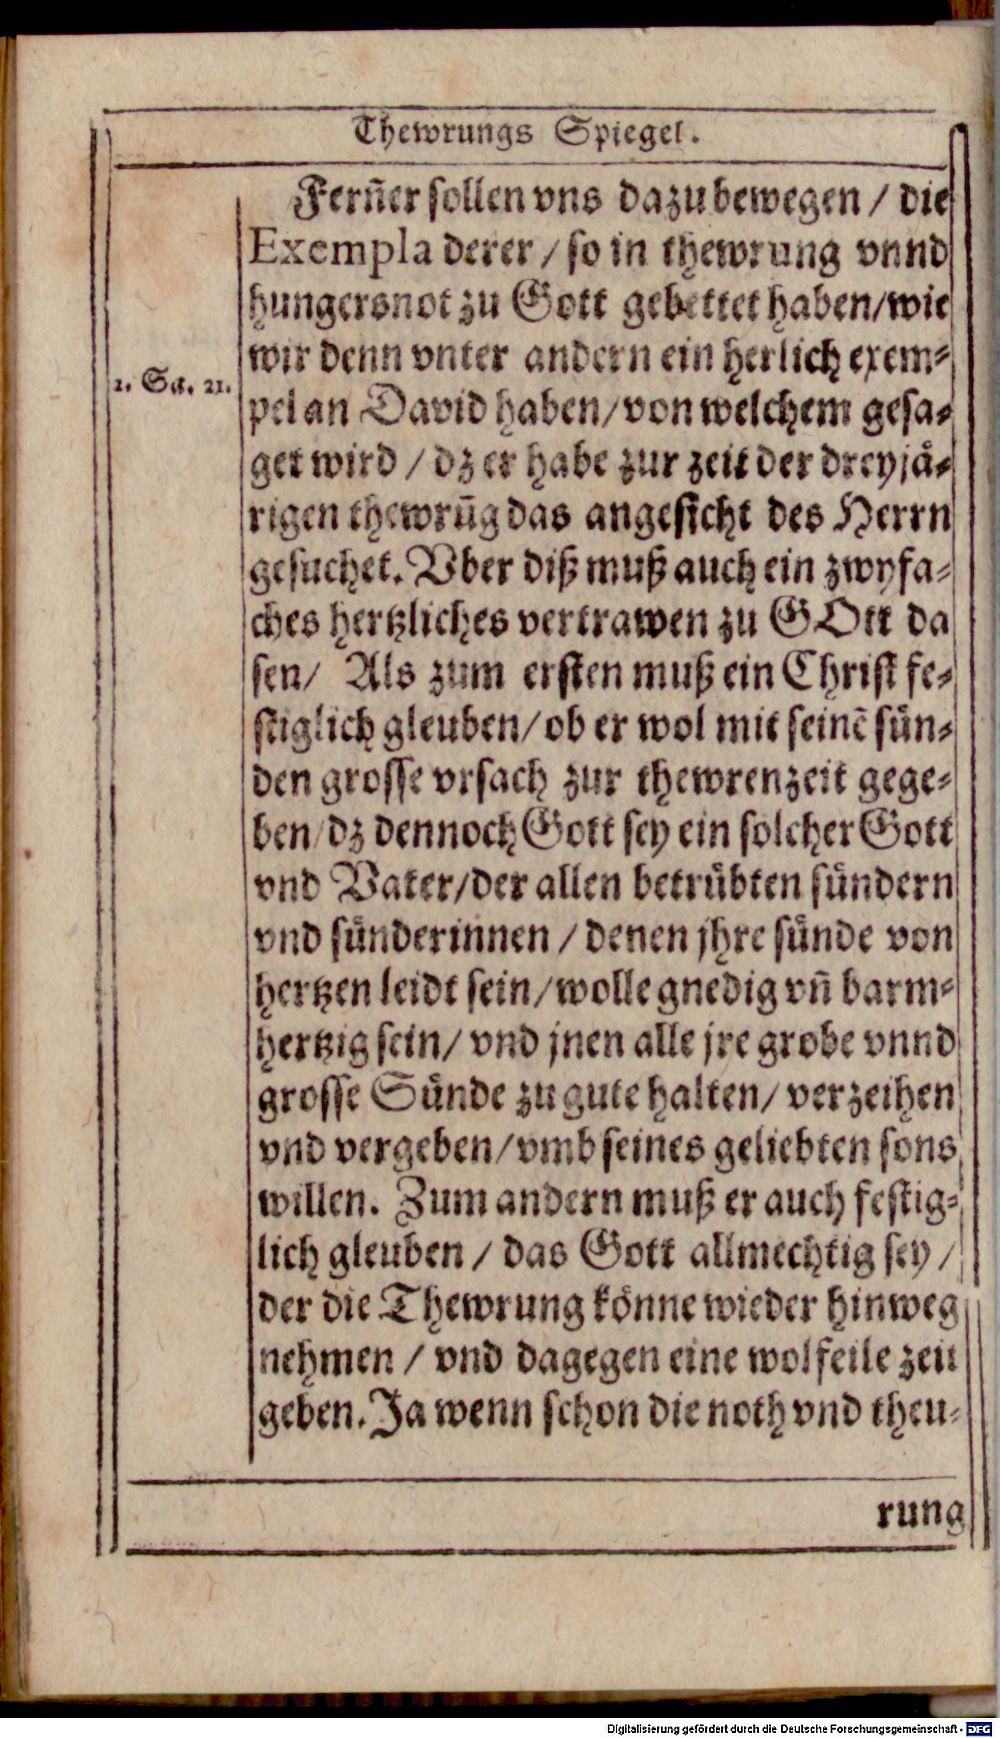 Thewrungs Spiegel.
Fern̄er sollen vns dazu bewegen / die
Exempla derer / so in thewrung vnnd
hungersnot zu Gott gebettet haben/wie
wir denn vnter andern ein herlich exem-
2. Sa. 21.
pel an David haben/von welchem gesa-
get wird / dz er habe zur zeit der dreyjå-
rigen thewrūg das angesicht des Herrn
gesuchet. Vber diß muß auch ein zwyfa-
ches hertzliches vertrawen zu GOtt da
sen/ Als zum ersten muß ein Christ fe-
stiglich gleuben/ob er wol mit seinē sün-
den grosse vrsach zur thewrenzeit gege-
ben/dz dennoch Gott sey ein solcher Gott
vnd Vater/der allen betrübten sündern
vnd sünderinnen / denen jhre sünde von
hertzen leidt sein/wolle gnedig vn̄ barm-
hertzig sein/ vnd jnen alle jre grobe vnnd
grosse Sünde zu gute halten/ verzeihen
vnd vergeben/vmb seines geliebten sons
willen. Zum andern muß er auch festig-
lich gleuben / das Gott allmechtig sey /
der die Thewrung könne wieder hinweg
nehmen / vnd dagegen eine wolfeile zeit
geben. Ja wenn schon die noth vnd theu-
rung
Digitalisierung gefördert durch die Deutsche Forschungsgemeinschaft - DFG